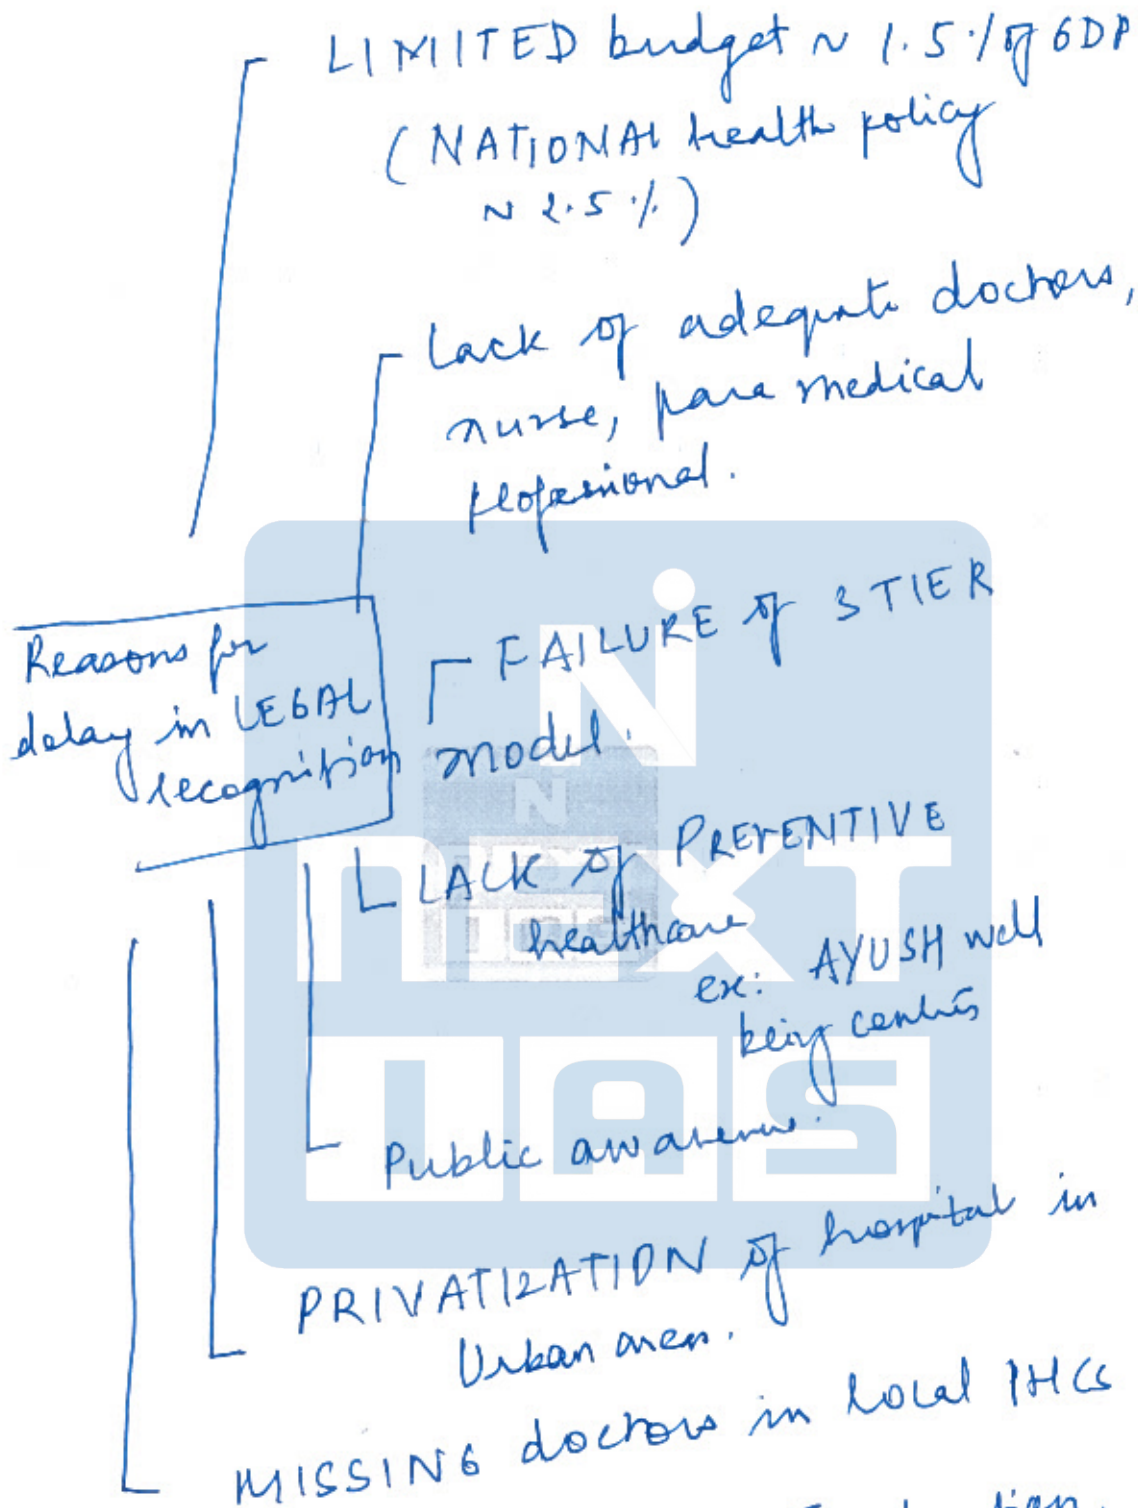 LIMIITED budget ~ 1.5% of GDP
(NATIONAL health policy
~ 2.5%)
Lack of adequate doctors,
nurse, para medical
professional.
Reasons for
delay in LEGAL
recognition
FAILURE of 3 TIER
model.
LACK of PREVENTIVE
healthcare
ex: AYUSH well
being centres
Public awareness.
PRIVATIZATION of hospital in
Urban areas.
MISSING doctors in local PHCs
N
NEXT
IAS